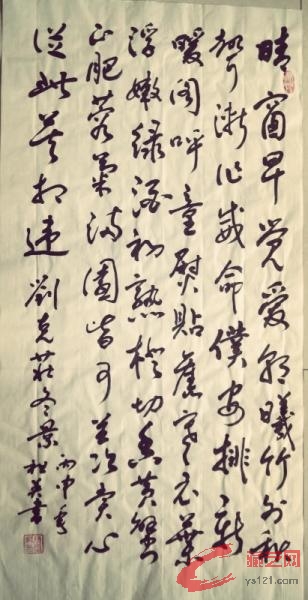 晴窗早觉爱朝曦竹外秋
声渐作威命僕安排新
暖阁呼童熨貼舊寒衣葉
浮嫩绿酒初熟橙切香黄蟹
正肥蓉菊满園皆可羡赏心
從此莫相违劉克莊冬景
丙申
英書
ys121.com